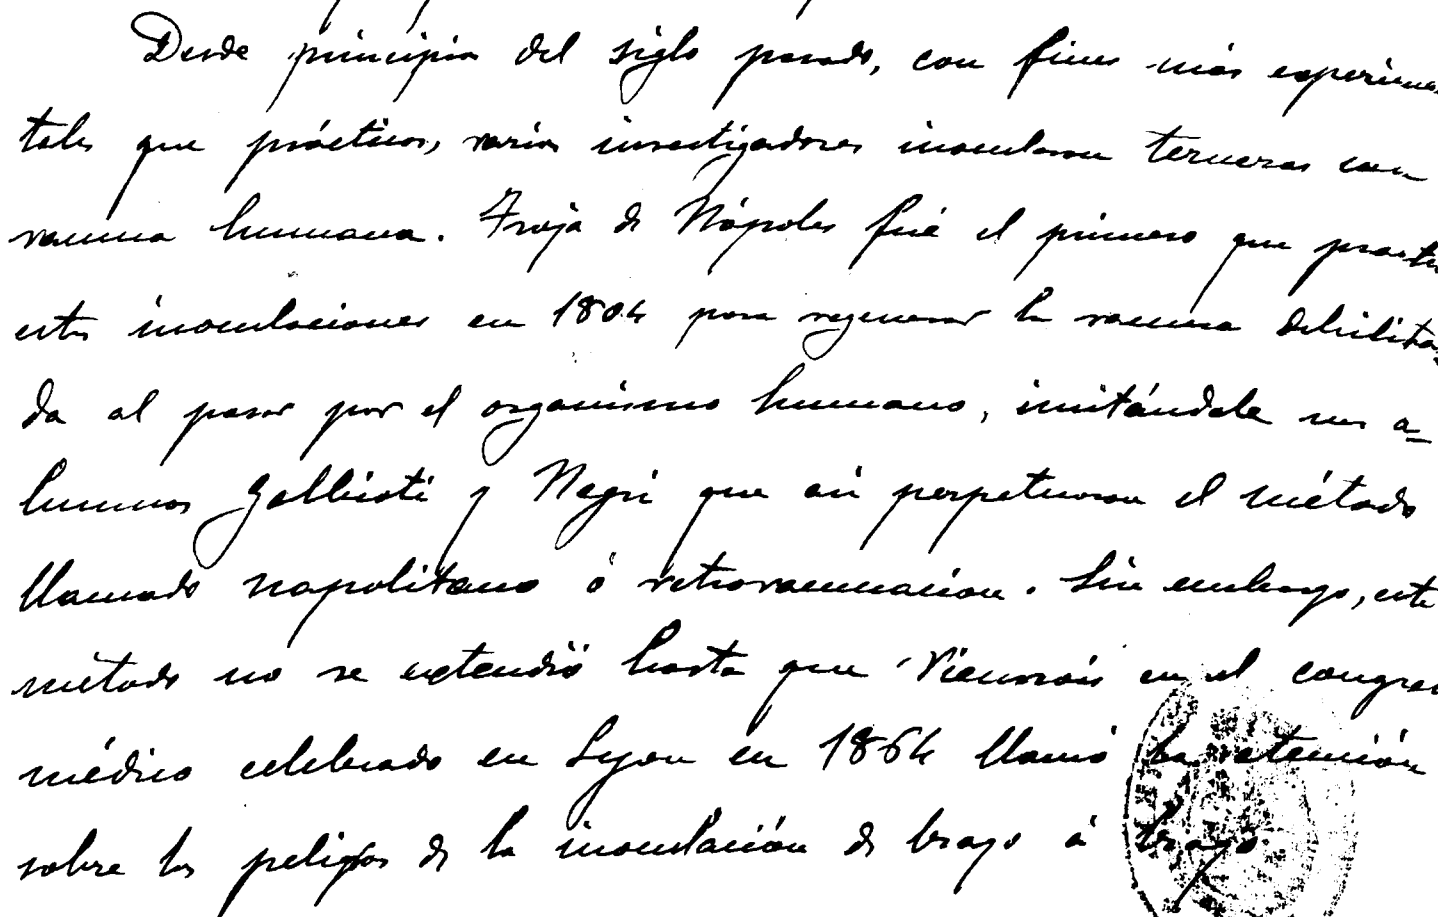 Desde principios del siglo pasado, con fines más experimen
tales que prácticos, varios investigadores inocularon terneras con
vacuna humana. Troja de Nápoles fué el primero que practicó
estas inoculaciones en 1804 para regenerar la vacuna debilita-
da al pasar por el organismo humano, imitándole sus a-
lumnos Galbiati y Negri que así perpetuaron el método
llamado napolitano ó retrovacunacion. Sin embargo, este
método no se extendió hasta que Viennois en el congreso
médico celebrado en Lyon en 1864 llamó la atención
sobre los peligros de la inoculación de brazo á brazo.